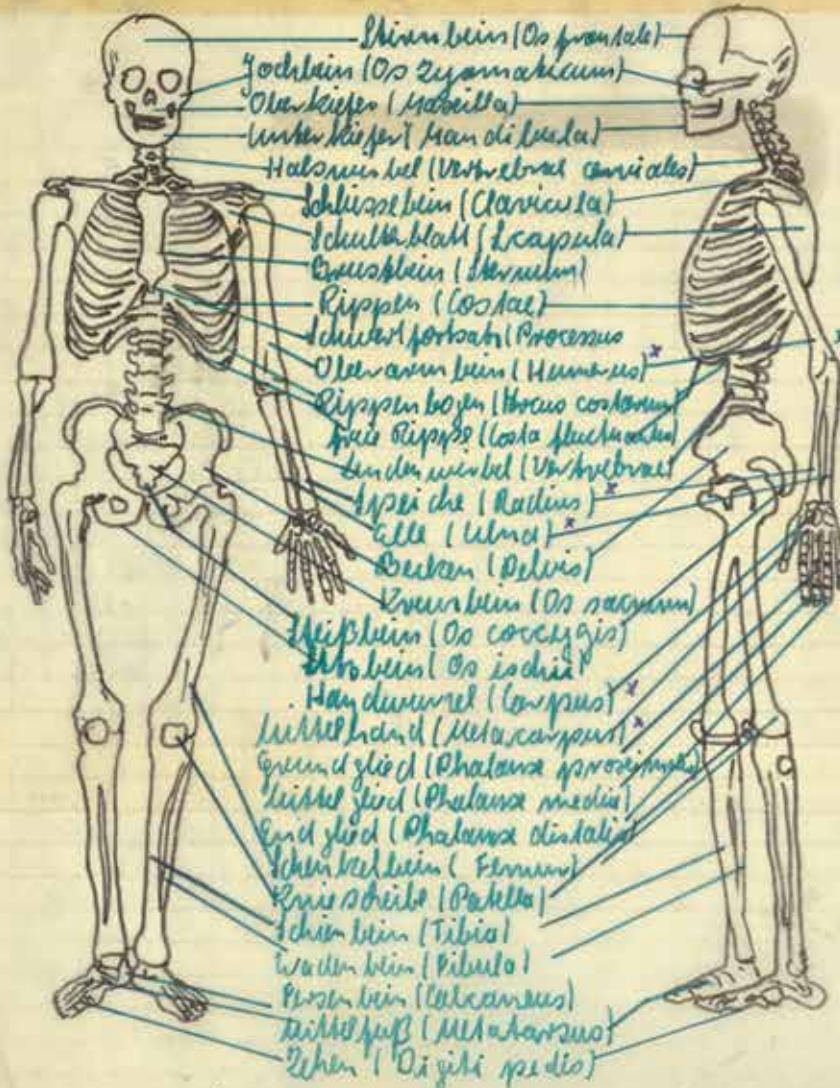 Stirnbein (Os frontale)
Jochbein (Os zygomaticum)
Oberkiefer (Maxilla)
Unterkiefer (Mandibula)
Halswirbel (Vertrebrae cerviales)
Schlüsselbein (Clavicula)
Schulterblatt (Scapula)
Brustbein (Sternum)
Rippen (Costae)
Schwertfortsatz (Processus
Oberarmbein (Humerus) x
Rippenbogen (Arcus costarum)
freie Rippe (Costa fluctuantes)
Lendenwirbel (Vertrebrae)
Speiche (Radius) x
Elle (Ulna) x
Becken (Pelvis)
Kreuzbein (Os sacrum)
Steißbein (Os coccygis)
Sitzbein (Os ischii)
Handwurzel (Carpus) x
Mittelhand (Metacarpus) x
Grundglied (Phalanx proximalis)
Mittelglied (Phalanx media)
Endglied (Phalanx distalis)
Schenkelbein (Femur)
Kniescheibe (Patella)
Schienbein (Tibia)
Wadenbein (Fibula)
Fersenbein (Calcaneus)
Mittelfuß (Metatarsus)
Zehen (Digiti pedis)